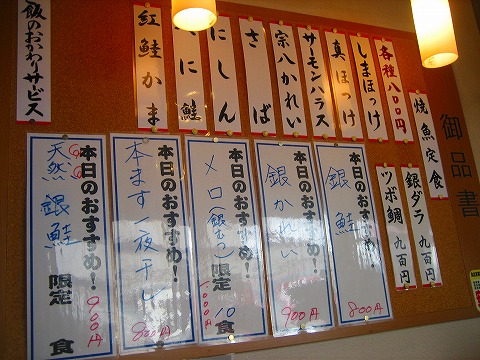 御品書
焼魚定食
各種八〇〇円
しまほっけ
真ほっけ
サーモンハラス
宗八かれい
さば
にしん
べに鮭
紅鮭かま
ご飯のおかわりサービス
銀ダラ 九百円
ツボ鯛 九百円
本日のおすすめ!
銀鮭
800円
本日のおすすめ!
銀かれい
900円
本日のおすすめ!
メロ(銀むつ)
限定10食
1,000円
本日のおすすめ!
本ます一夜干し
800円
本日のおすすめ!
天然 銀鮭
限定 食
900円